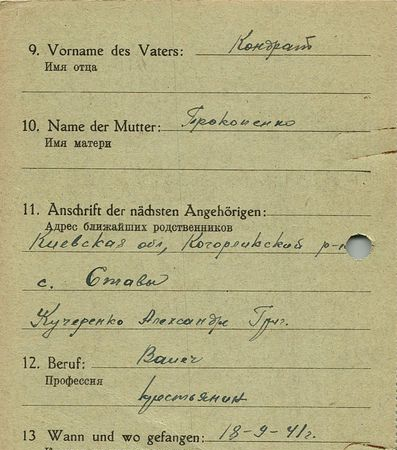 9. Vorname des Vaters: Кондрат
Имя отца
10. Name der Mutter: Прокопенко
Имя матери
11. Anschrift der nächsten Angehörigen:
Адрес ближайших родственников
Киевская обл, Когорликский р-н
с. Ставы
Кучеренко Александре Григ.
12. Beruf:
Профессия крестьянин
13 Wann und wo gefangen: 18-9-41г.